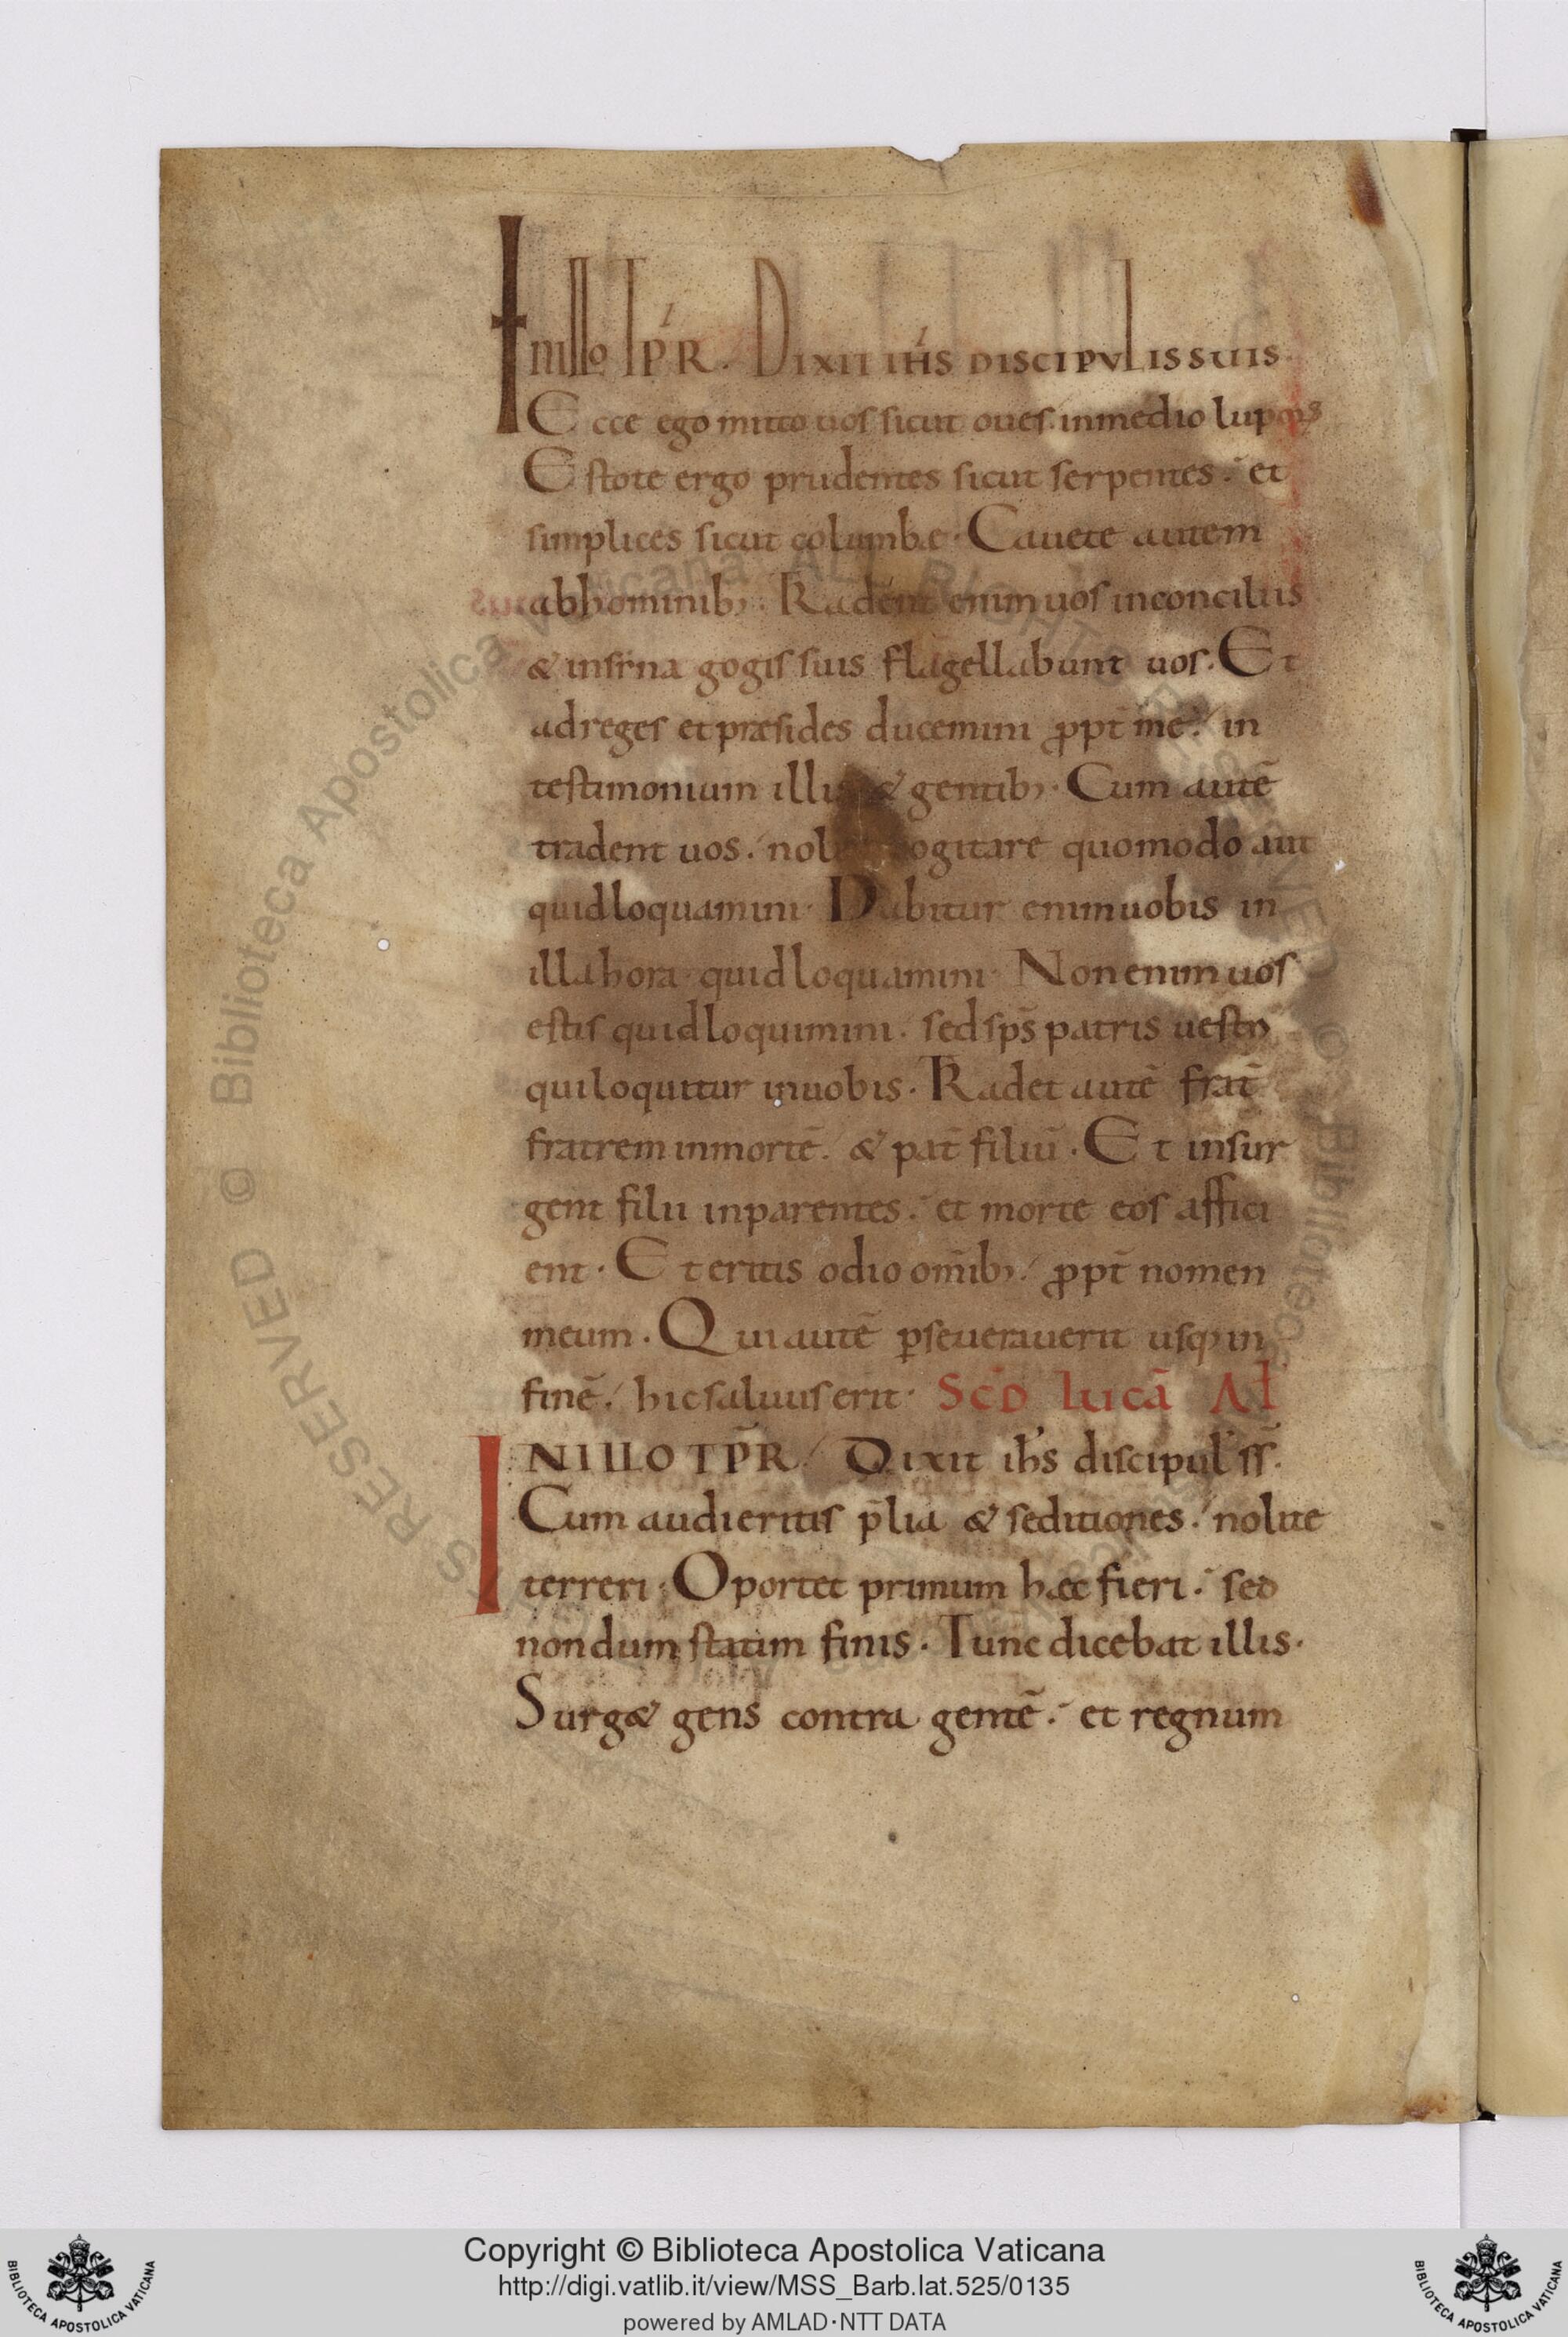 In illo Tp̄R. Dixit ih̄s discipulis suis.
Ecce ego mitto uos sicut oues inmedio lupoꝝ
Estote ergo prudentes sicut serpentes. et
simplices sicut columbæ. Cauete autem
abhominib; Tradent enim uos inconciliis
& insinagogis suis flagellabunt uos. Et
adreges et præsides ducemini ꝓpt̄ me. in
testimonium illis & gentib;. Cum autē
tradent uos. nolite cogitare quomodo aut
quid loquamini. Dabitur enim uobis in
illa hora quid loquamini. Non enim uos
estis quid loquimini. sed sp̄s patris uestri
qui loquitur inuobis. Tradet autē frat̄
fratrem inmortē. & pat̄ filiū. Et insur
gent filii inparentes. et morte eos affici
ent. Et eritis odio om̄ib;. ꝓpt̄ nomen
meum. Qui autē ꝑseuerauerit usq; in
finē. hic saluus erit. Sc̄D lucā Al̄
IN ILLO TP̄R. Dixit ih̄s discipul' ss̄.
Cum audieritis p̄lia & seditiones. nolite
terreri. Oportet primum hæc fieri. sed
nondum statim finis. Tunc dicebat illis.
Surg& gens contra gentē. et regnum
Biblioteca Apostolica Vaticana ALL RIGHTS RESERVED © Biblioteca
RESERVED © Biblioteca Apostolica Vaticana
Copyright © Biblioteca Apostolica Vaticana
http://digi.vatlib.it/view/MSS_Barb.lat.525/0135
powered by AMLAD·NTT DATA
BIBLIOTECA APOSTOLICA VATICANA
BIBLIOTECA APOSTOLICA VATICANA